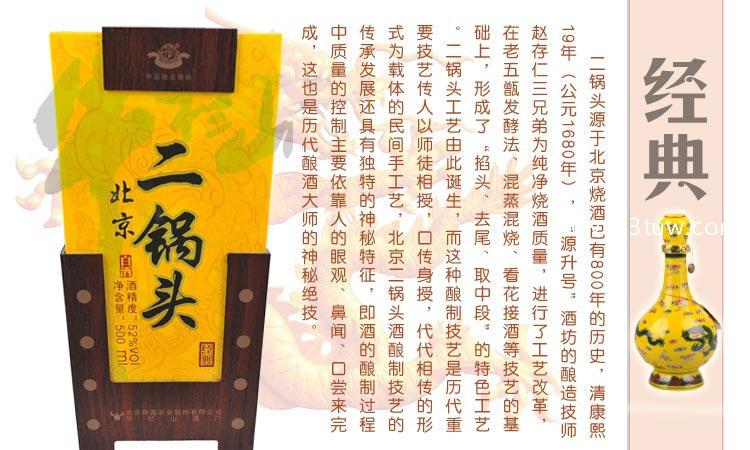 经典
二锅头源于北京烧酒已有800年的历史，清康熙
19年（公元1680年），“源升号”酒坊的酿造技师
赵存仁三兄弟为纯净烧酒质量，进行了工艺改革，
在老五甑发酵法、混蒸混烧、看花接酒等技艺的基
础上，形成了“掐头、去尾、取中段”的特色工艺
。二锅头工艺由此诞生，而这种酿制技艺是历代重
要技艺传人以师徒相授，口传身授，代代相传的形
式为载体的民间手工艺，北京二锅头酒酿制技艺的
传承发展还具有独特的神秘特征，即酒的酿制过程
中质量的控制主要依靠人的眼观、鼻闻、口尝来完
成，这也是历代酿酒大师的神秘绝技。
中国驰名商标
北京
二锅头
白酒
酒精度：52%vol
净含量：500ml
经典
北京顺鑫农业股份有限公司
牛栏山酒厂
3tuw.com